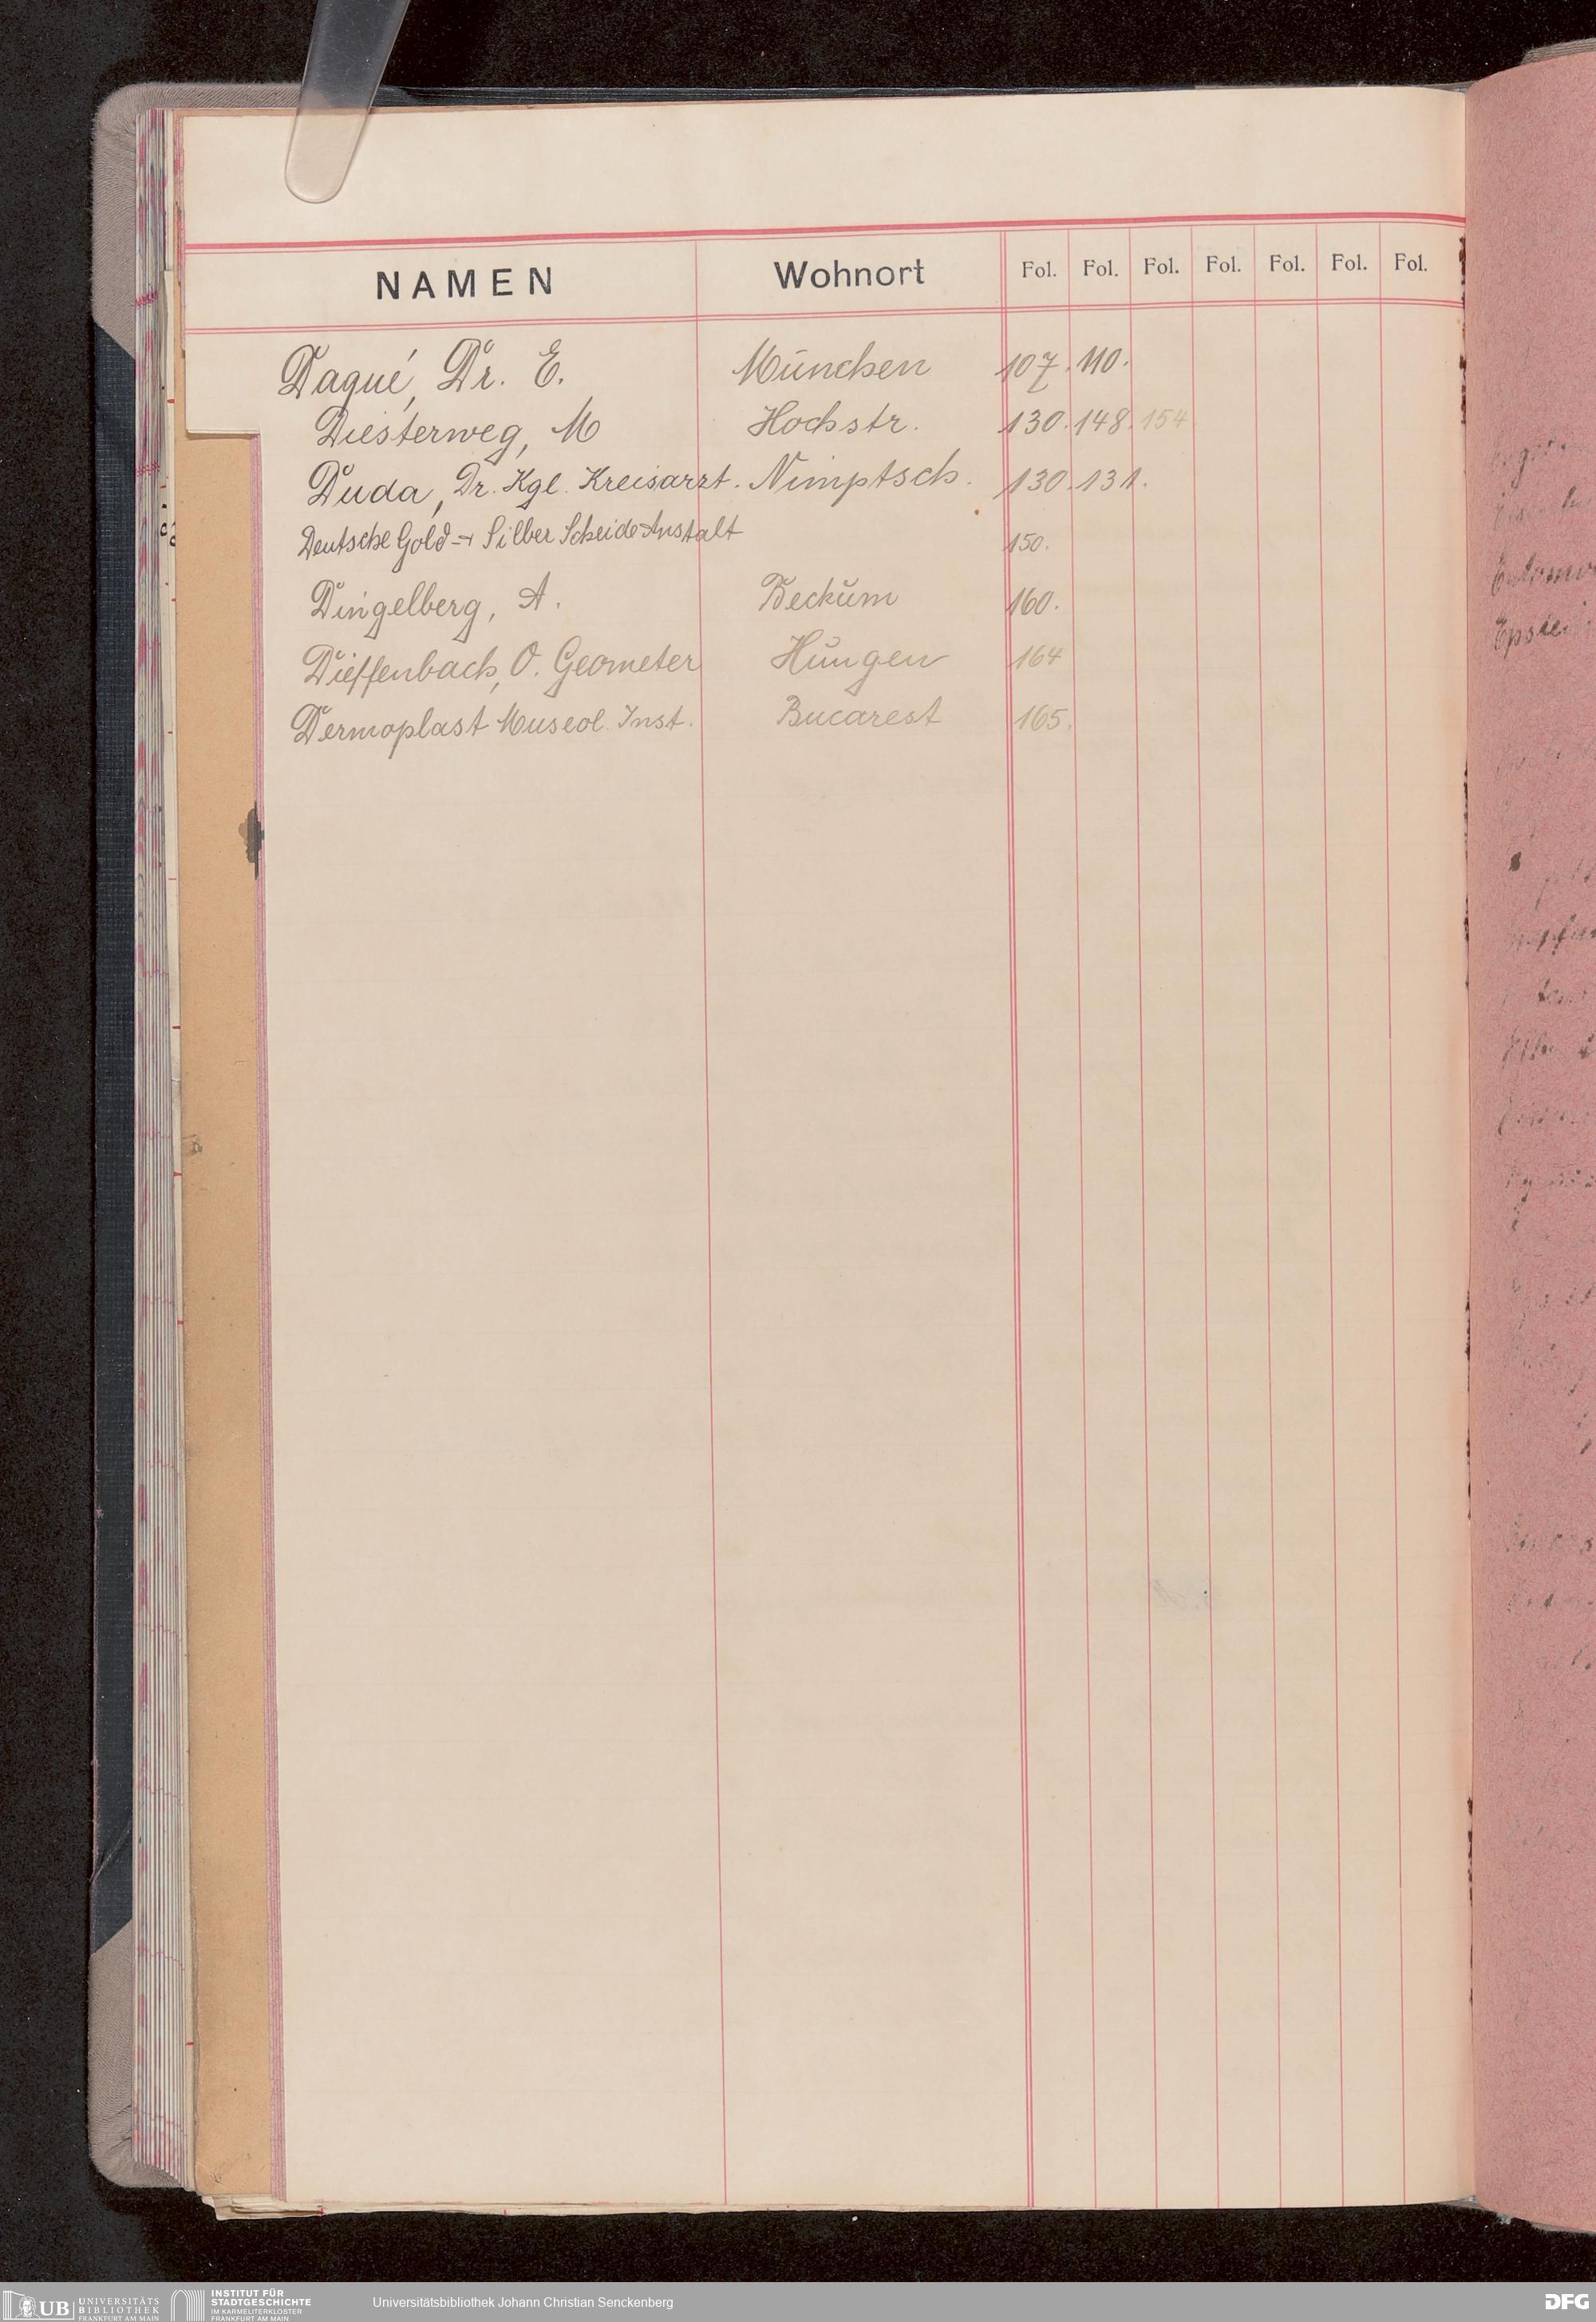 NAMEN Wohnort Fol. Fol. Fol. Fol. Fol. Fol. Fol.
Daqué, Dr. E. München 107. 110.
Diesterweg, M Hochstr. 130. 148. 154
Duda, Dr. Kgl. Kreisarzt. Nimptsch. 130. 131.
Deutsche Gold- + Silber Scheide Anstalt 150.
Dingelberg, A. Beckum 160.
Dieffenbach, O. Geometer Hungen 164
Dermoplast Museol. Inst. Bucarest 165.
UB UNIVERSITÄTS BIBLIOTHEK FRANKFURT AM MAIN
INSTITUT FÜR STADTGESCHICHTE IM KARMELITERKLOSTER FRANKFURT AM MAIN
Universitätsbibliothek Johann Christian Senckenberg
DFG